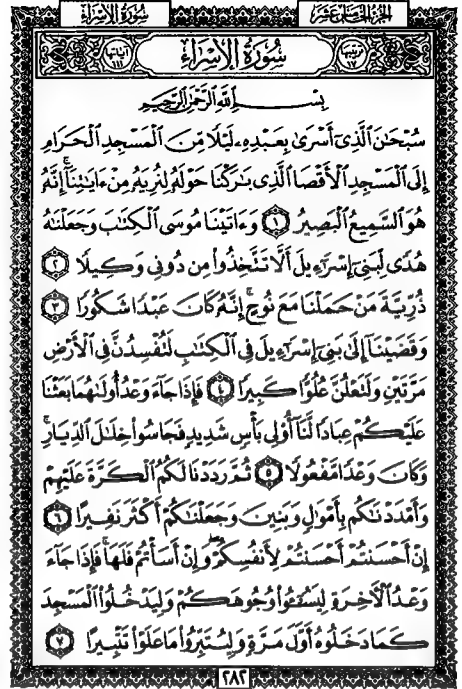 سُورَةُ الإِسْرَاءِ
الجُزْءُ الخَامِسَ عَشَرَ
سُورَةُ الإِسْرَاءِ
بِسْمِ ٱللَّهِ ٱلرَّحْمَٰنِ ٱلرَّحِيمِ
سُبْحَٰنَ ٱلَّذِىٓ أَسْرَىٰ بِعَبْدِهِۦ لَيْلًا مِّنَ ٱلْمَسْجِدِ ٱلْحَرَامِ
إِلَى ٱلْمَسْجِدِ ٱلْأَقْصَا ٱلَّذِى بَٰرَكْنَا حَوْلَهُۥ لِنُرِيَهُۥ مِنْ ءَايَٰتِنَآ ۚ إِنَّهُۥ
هُوَ ٱلسَّمِيعُ ٱلْبَصِيرُ ١ وَءَاتَيْنَا مُوسَى ٱلْكِتَٰبَ وَجَعَلْنَٰهُ
هُدًى لِّبَنِىٓ إِسْرَٰٓءِيلَ أَلَّا تَتَّخِذُوا۟ مِن دُونِى وَكِيلًا ٢
ذُرِّيَّةَ مَنْ حَمَلْنَا مَعَ نُوحٍ ۚ إِنَّهُۥ كَانَ عَبْدًا شَكُورًا ٣
وَقَضَيْنَآ إِلَىٰ بَنِىٓ إِسْرَٰٓءِيلَ فِى ٱلْكِتَٰبِ لَتُفْسِدُنَّ فِى ٱلْأَرْضِ
مَرَّتَيْنِ وَلَتَعْلُنَّ عُلُوًّا كَبِيرًا ٤ فَإِذَا جَآءَ وَعْدُ أُولَىٰهُمَا بَعَثْنَا
عَلَيْكُمْ عِبَادًا لَّنَآ أُو۟لِى بَأْسٍ شَدِيدٍ فَجَاسُوا۟ خِلَٰلَ ٱلدِّيَارِ ۚ
وَكَانَ وَعْدًا مَّفْعُولًا ٥ ثُمَّ رَدَدْنَا لَكُمُ ٱلْكَرَّةَ عَلَيْهِمْ
وَأَمْدَدْنَٰكُم بِأَمْوَٰلٍ وَبَنِينَ وَجَعَلْنَٰكُمْ أَكْثَرَ نَفِيرًا ٦
إِنْ أَحْسَنتُمْ أَحْسَنتُمْ لِأَنفُسِكُمْ ۖ وَإِنْ أَسَأْتُمْ فَلَهَا ۚ فَإِذَا جَآءَ
وَعْدُ ٱلْأَخِرَةِ لِيَسُۥٓـُٔوا۟ وُجُوهَكُمْ وَلِيَدْخُلُوا۟ ٱلْمَسْجِدَ
كَمَا دَخَلُوهُ أَوَّلَ مَرَّةٍ وَلِيُتَبِّرُوا۟ مَا عَلَوْا۟ تَتْبِيرًا ٧
٢٨٢